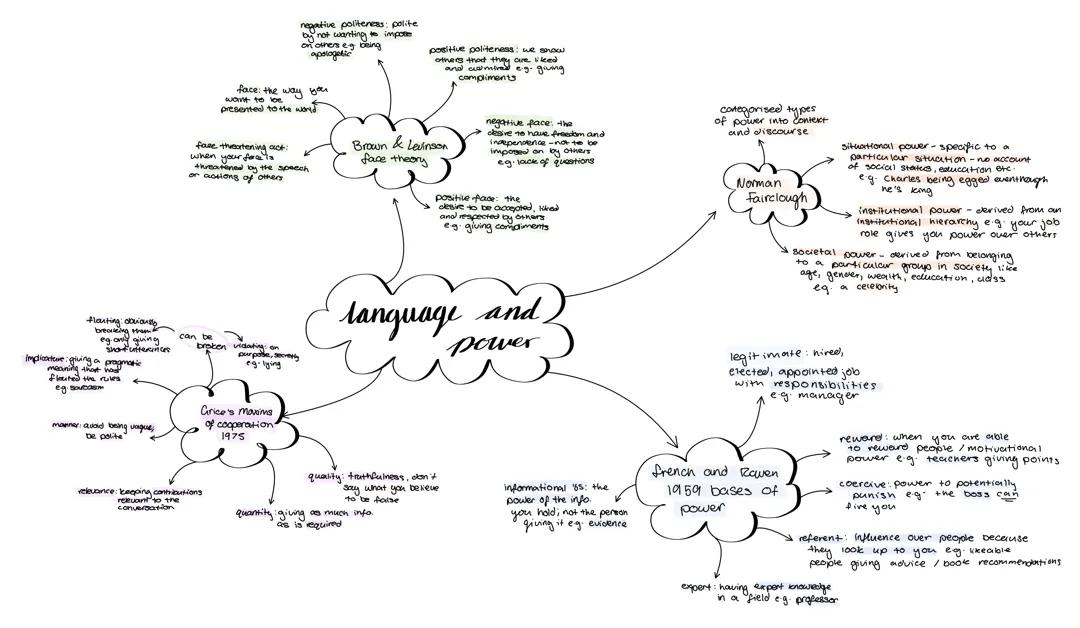 language and
power
Brown & Levinson
face theory
negative politeness: polite
by not wanting to impose
on others e.g. being
apologetic
positive politeness: we show
others that they are liked
and admired e.g. giving
compliments
face: the way you
want to be
presented to the world
negative face: the
desire to have freedom and
independence - not to be
imposed on by others
e.g. lack of questions
face threatening act:
when your face is
threatened by the speech
or actions of others
positive face: the
desire to be accepted, liked
and respected by others
e.g. giving compliments
Norman
Fairclough
categorised types
of power into context
and discourse
situational power - specific to a
particular situation - no account
of social status, education etc.
e.g. Charles being egged eventhough
he's king
institutional power - derived from an
institutional hierarchy e.g. your job
role gives you power over others
societal power - derived from belonging
to a particular group in society like
age, gender, wealth, education, class
e.g. a celebrity
Grice's maxims
of cooperation
1975
can be
broken
flouting: obviously
breaking them
e.g. only giving
short utterances
violating: on
purpose, secretly
e.g. lying
implicature: giving a pragmatic
meaning that has
flouted the rules
e.g. sarcasm
manner: avoid being vague,
be polite
relevance: keeping contributions
relevant to the
conversation
quantity: giving as much info.
as is required
quality: truthfulness, don't
say what you believe
to be false
french and Raven
1959 bases of
power
legitimate: hired,
elected, appointed job
with responsibilities
e.g. manager
reward: when you are able
to reward people / motivational
power e.g. teachers giving points
coercive: power to potentially
punish e.g. the boss can
fire you
referent: influence over people because
they look up to you e.g. likeable
people giving advice / book recommendations
expert: having expert knowledge
in a field e.g. professor
informational '65: the
power of the info.
you hold, not the person
giving it e.g. evidence